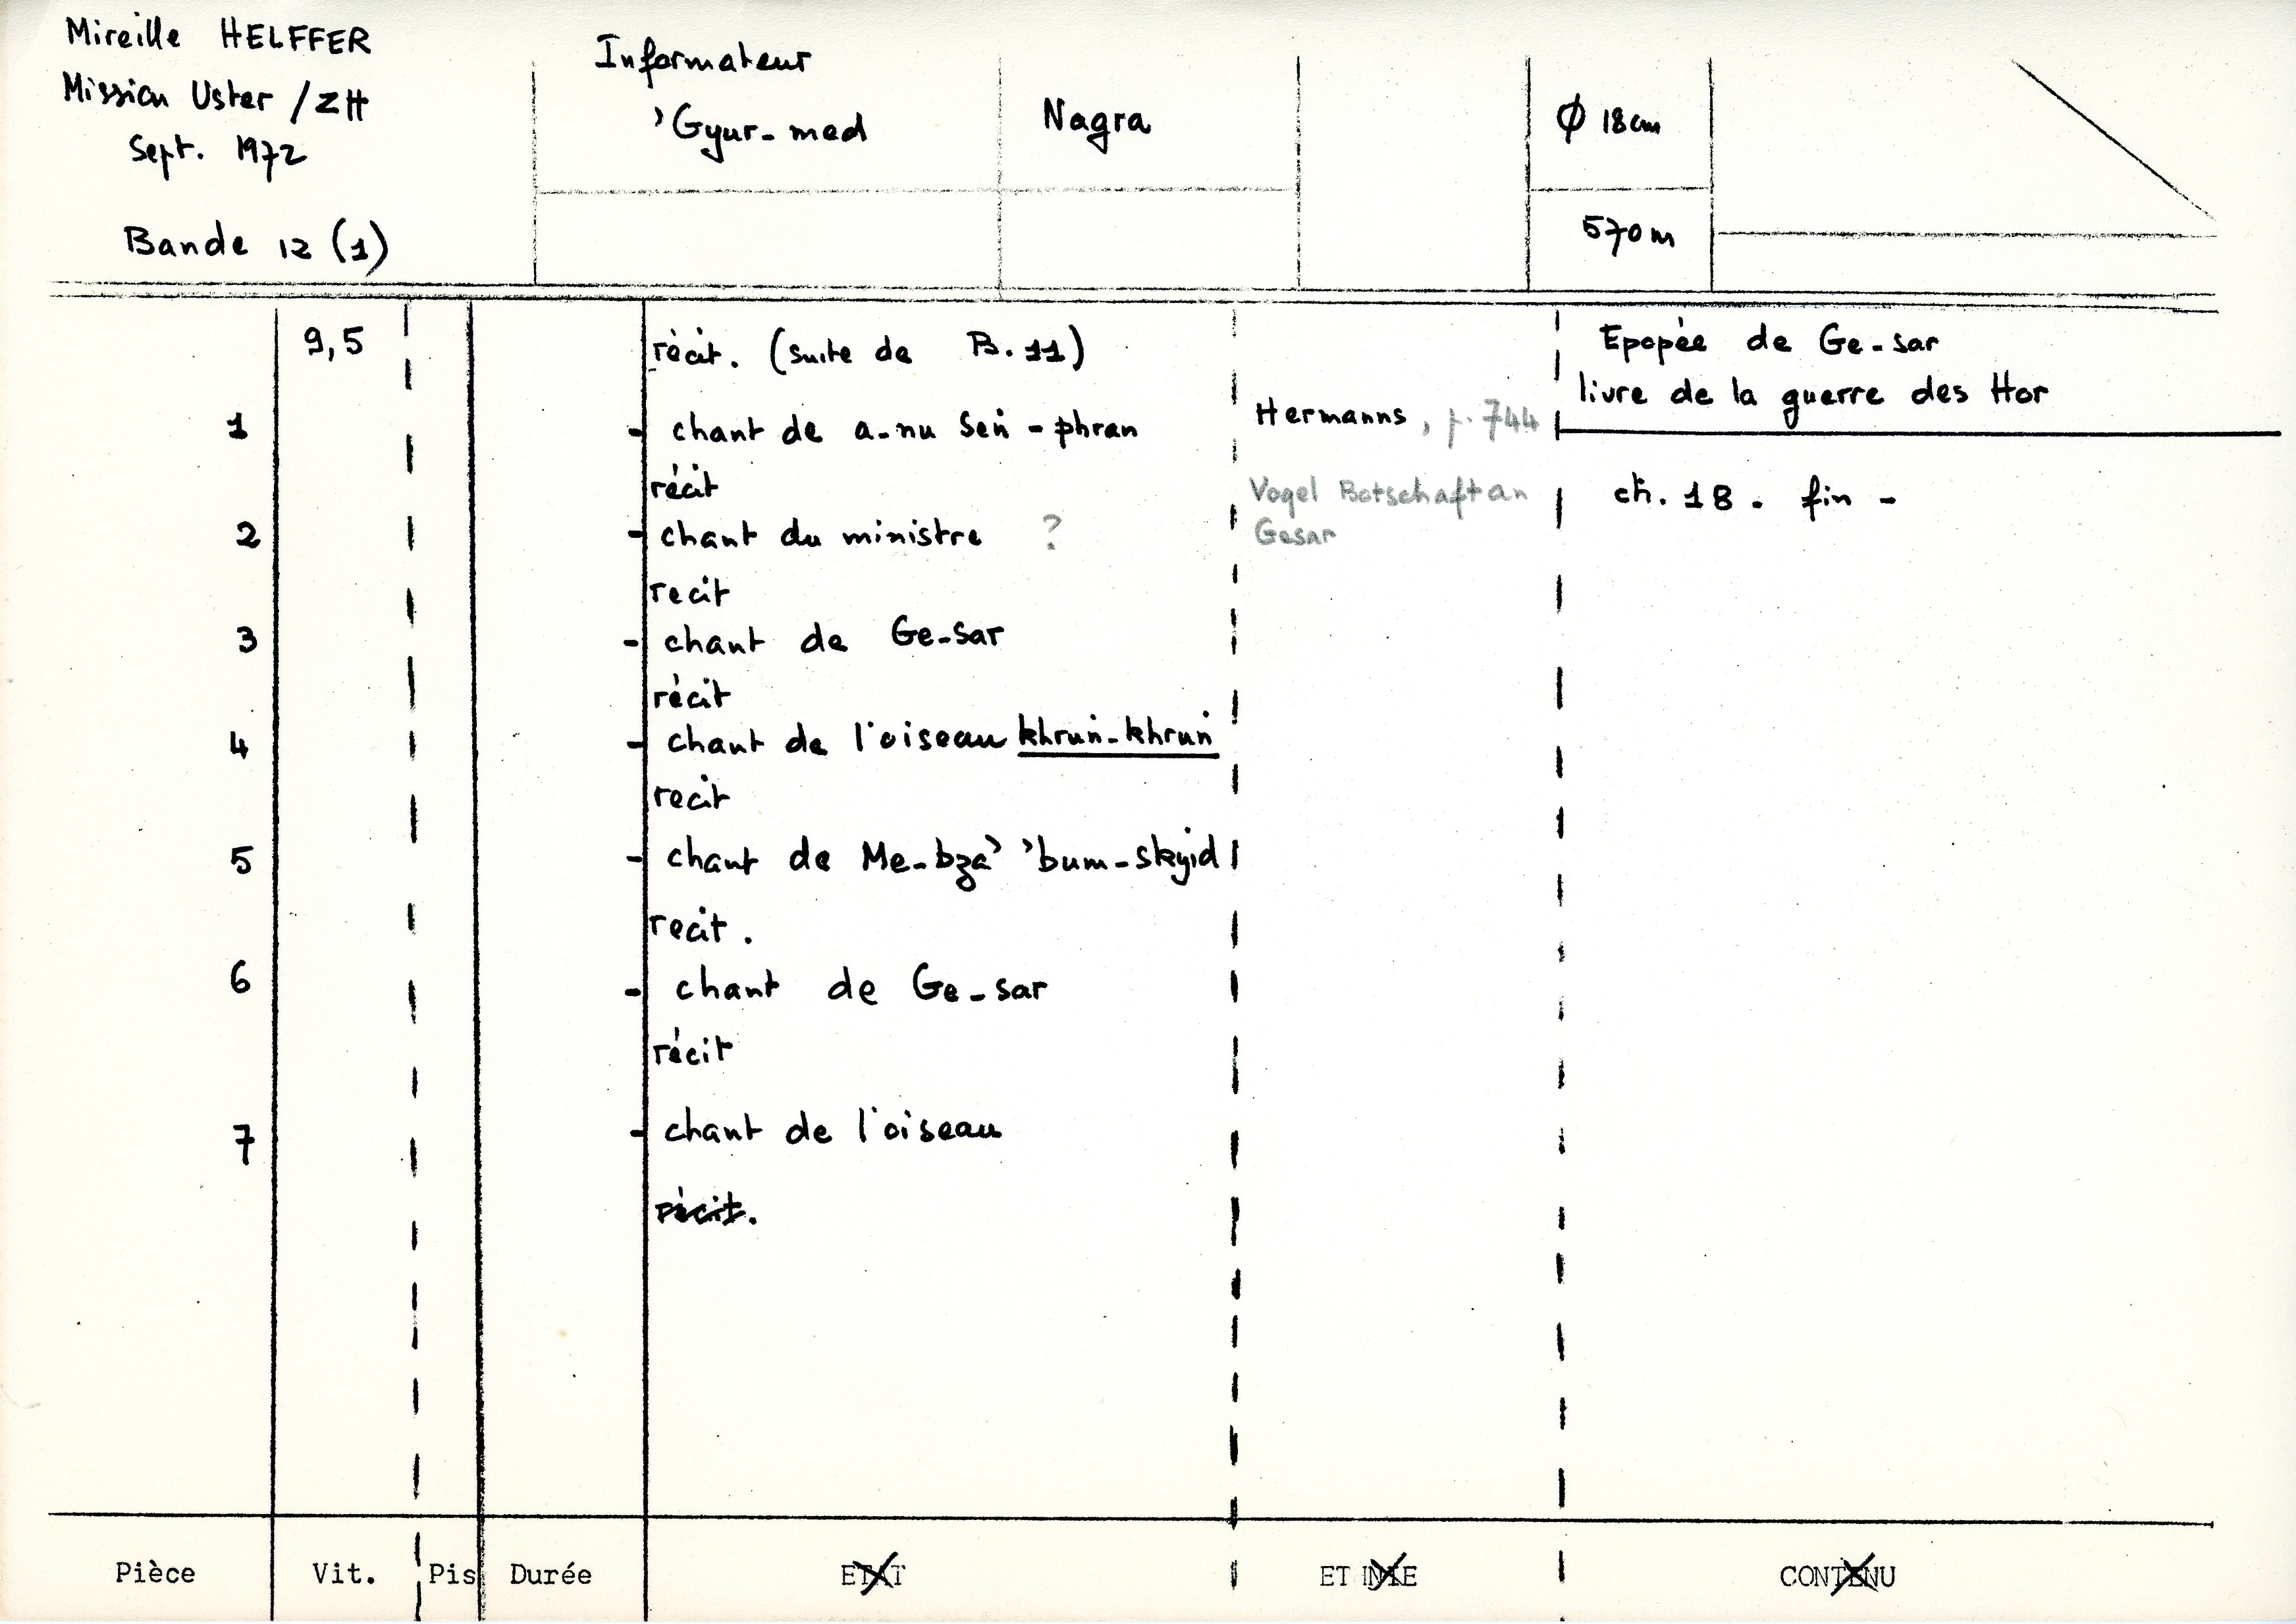 Mireille HELFFER
Mission Uster / ZH
Sept. 1972
Bande 12 (1)
Informateur
'Gyur-med
Nagra
Ø 18cm
570m
9,5
récit. (suite de B.11)
Epopée de Ge-sar
livre de la guerre des Hor
1 - chant de a-nu Seṅ-phran
Hermanns, p. 744
récit
Vogel Botschaft an
Gesar
ch. 18. fin -
2 - chant du ministre ?
recit
3 - chant de Ge-sar
récit
4 - chant de l'oiseau khruṅ-khruṅ
recit
5 - chant de Me-bza' 'bum-skyid
recit.
6 - chant de Ge-sar
récit
7 - chant de l'oiseau
récit.
Pièce Vit. Pis Durée ETAT CONTENU